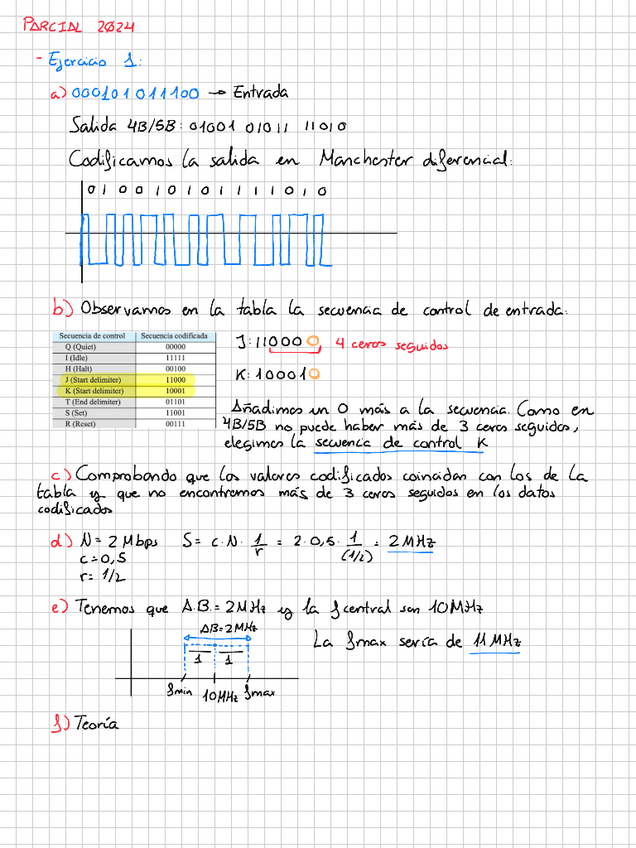 PARCIAL 2024
- Ejercicio 1:
a) 000101011100 → Entrada
Salida 4B/5B: 01001 01011 11010
Codificamos la salida en Manchester diferencial:
0 1 0 0 1 0 1 0 1 1 1 1 0 1 0
b) Observamos en la tabla la secuencia de control de entrada:
Secuencia de control Secuencia codificada
Q (Quiet) 00000
I (Idle) 11111
H (Halt) 00100
J (Start delimiter) 11000
K (Start delimiter) 10001
T (End delimiter) 01101
S (Set) 11001
R (Reset) 00111
J: 110000 4 ceros seguidos
K: 100010
Añadimos un 0 más a la secuencia. Como en
4B/5B no puede haber más de 3 ceros seguidos,
elegimos la secuencia de control K
c) Comprobando que los valores codificados coincidan con los de la
tabla y que no encontremos más de 3 ceros seguidos en los datos
codificados
d) N= 2 Mbps S= c·N·1/r = 2·0,5·1/(1/2) = 2MHz
c= 0,5
r= 1/2
e) Tenemos que A.B.= 2MHz y la fcentral son 10MHz
AB=2MHz
La fmax sería de 11 MHz
1 1
fmin 10MHz fmax
f) Teoría